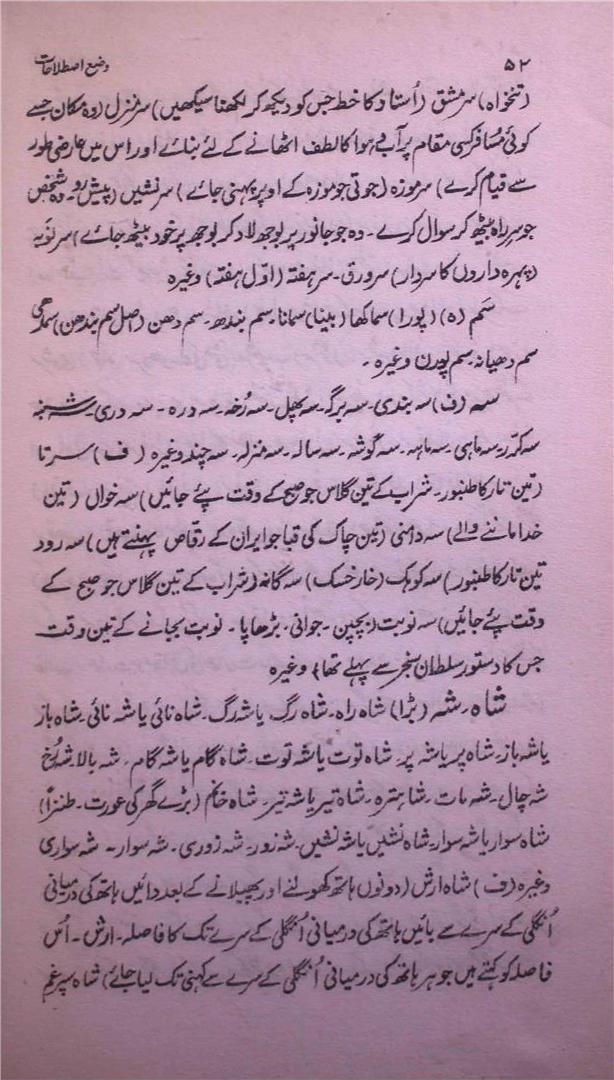 ۵۲ وضع اصطلاحات
(تنخواہ) سرمشق (اُستاد کا خط جس کو دیکھ کر لکھنا سیکھیں) سرمنزل (وہ مکان جسے
کوئی مسافر کسی مقام پر آب و ہوا کا لطف اٹھانے کے لئے بنائے اور اس میں عارضی طور
سے قیام کرے) سرموزہ (جوتی جو موزہ کے اوپر پہنی جائے) سرنشیں (پیش رو۔ وہ شخص
جو سر راہ بیٹھ کر سوال کرے۔ وہ جو جانور پر بوجھ لاد کر بوجھ پر خود بیٹھ جائے) سرنوبہ
(پہرہ داروں کا سردار) سرورق۔ سر ہفتہ (اوّل ہفتہ) وغیرہ
سَم (ہ) (پورا) سماکھا (بینا) سمانا۔ سم بندھ۔ سم دھن (اصل سم بندھن) سمدھی
سم دھیانہ۔ سم پورن وغیرہ۔
سہ (ف) سہ بندی۔ سہ برگہ۔ سہ پھل۔ سہ رُخہ۔ سہ درہ۔ سہ دری۔ سہ شنبہ
سہ کرّر۔ سہ ماہی۔ سہ ماہہ۔ سہ گوشہ۔ سہ سالہ۔ سہ منزلہ۔ سہ چند وغیرہ (ف) سہ تا
(تین تار کا طنبور۔ شراب کے تین گلاس جو صبح کے وقت پئے جائیں) سہ خوال (تین
خدا ماننے والے) سہ دامنی (تین چاک کی قبا جو ایران کے رقاص پہنتے ہیں) سہ رود
تین تار کا طنبور) سہ کوہک (خار خسک) سہ گانہ (شراب کے تین گلاس جو صبح کے
وقت پئے جائیں) سہ نوبت (بچپن۔ جوانی۔ بڑھاپا۔ نوبت بجانے کے تین وقت
جس کا دستور سلطان سنجر سے پہلے تھا) وغیرہ
شاہ۔ شہ (بڑا) شاہ راہ۔ شاہ رگ یا شہ رگ۔ شاہ نائی یا شہ نائی۔ شاہ باز
یا شہ باز۔ شاہ پر یا شہ پر۔ شاہ توت یا شہ توت۔ شاہ گام یا شہ گام۔ شہ بالا۔ شہ رُخ
شہ چال۔ شہ مات۔ شاہترہ۔ شاہ تیر یا شہ تیر۔ شاہ خانم (بڑے گھر کی عورت۔ طنزاً)
شاہ سوار یا شہ سوار۔ شاہ نشیں یا شہ نشیں۔ شہ زور۔ شہ زوری۔ شہ سوار۔ شہ سواری
وغیرہ (ف) شاہ ارش (دونوں ہاتھ کھولنے اور پھیلانے کے بعد دائیں ہاتھ کی درمیانی
اُنگلی کے سرے سے بائیں ہاتھ کی درمیانی اُنگلی کے سرے تک کا فاصلہ۔ ارش۔ اُس
فاصلہ کو کہتے ہیں جو ہر ہاتھ کی درمیانی اُنگلی کے سرے سے کہنی تک لیا جائے) شاہ سپرغم